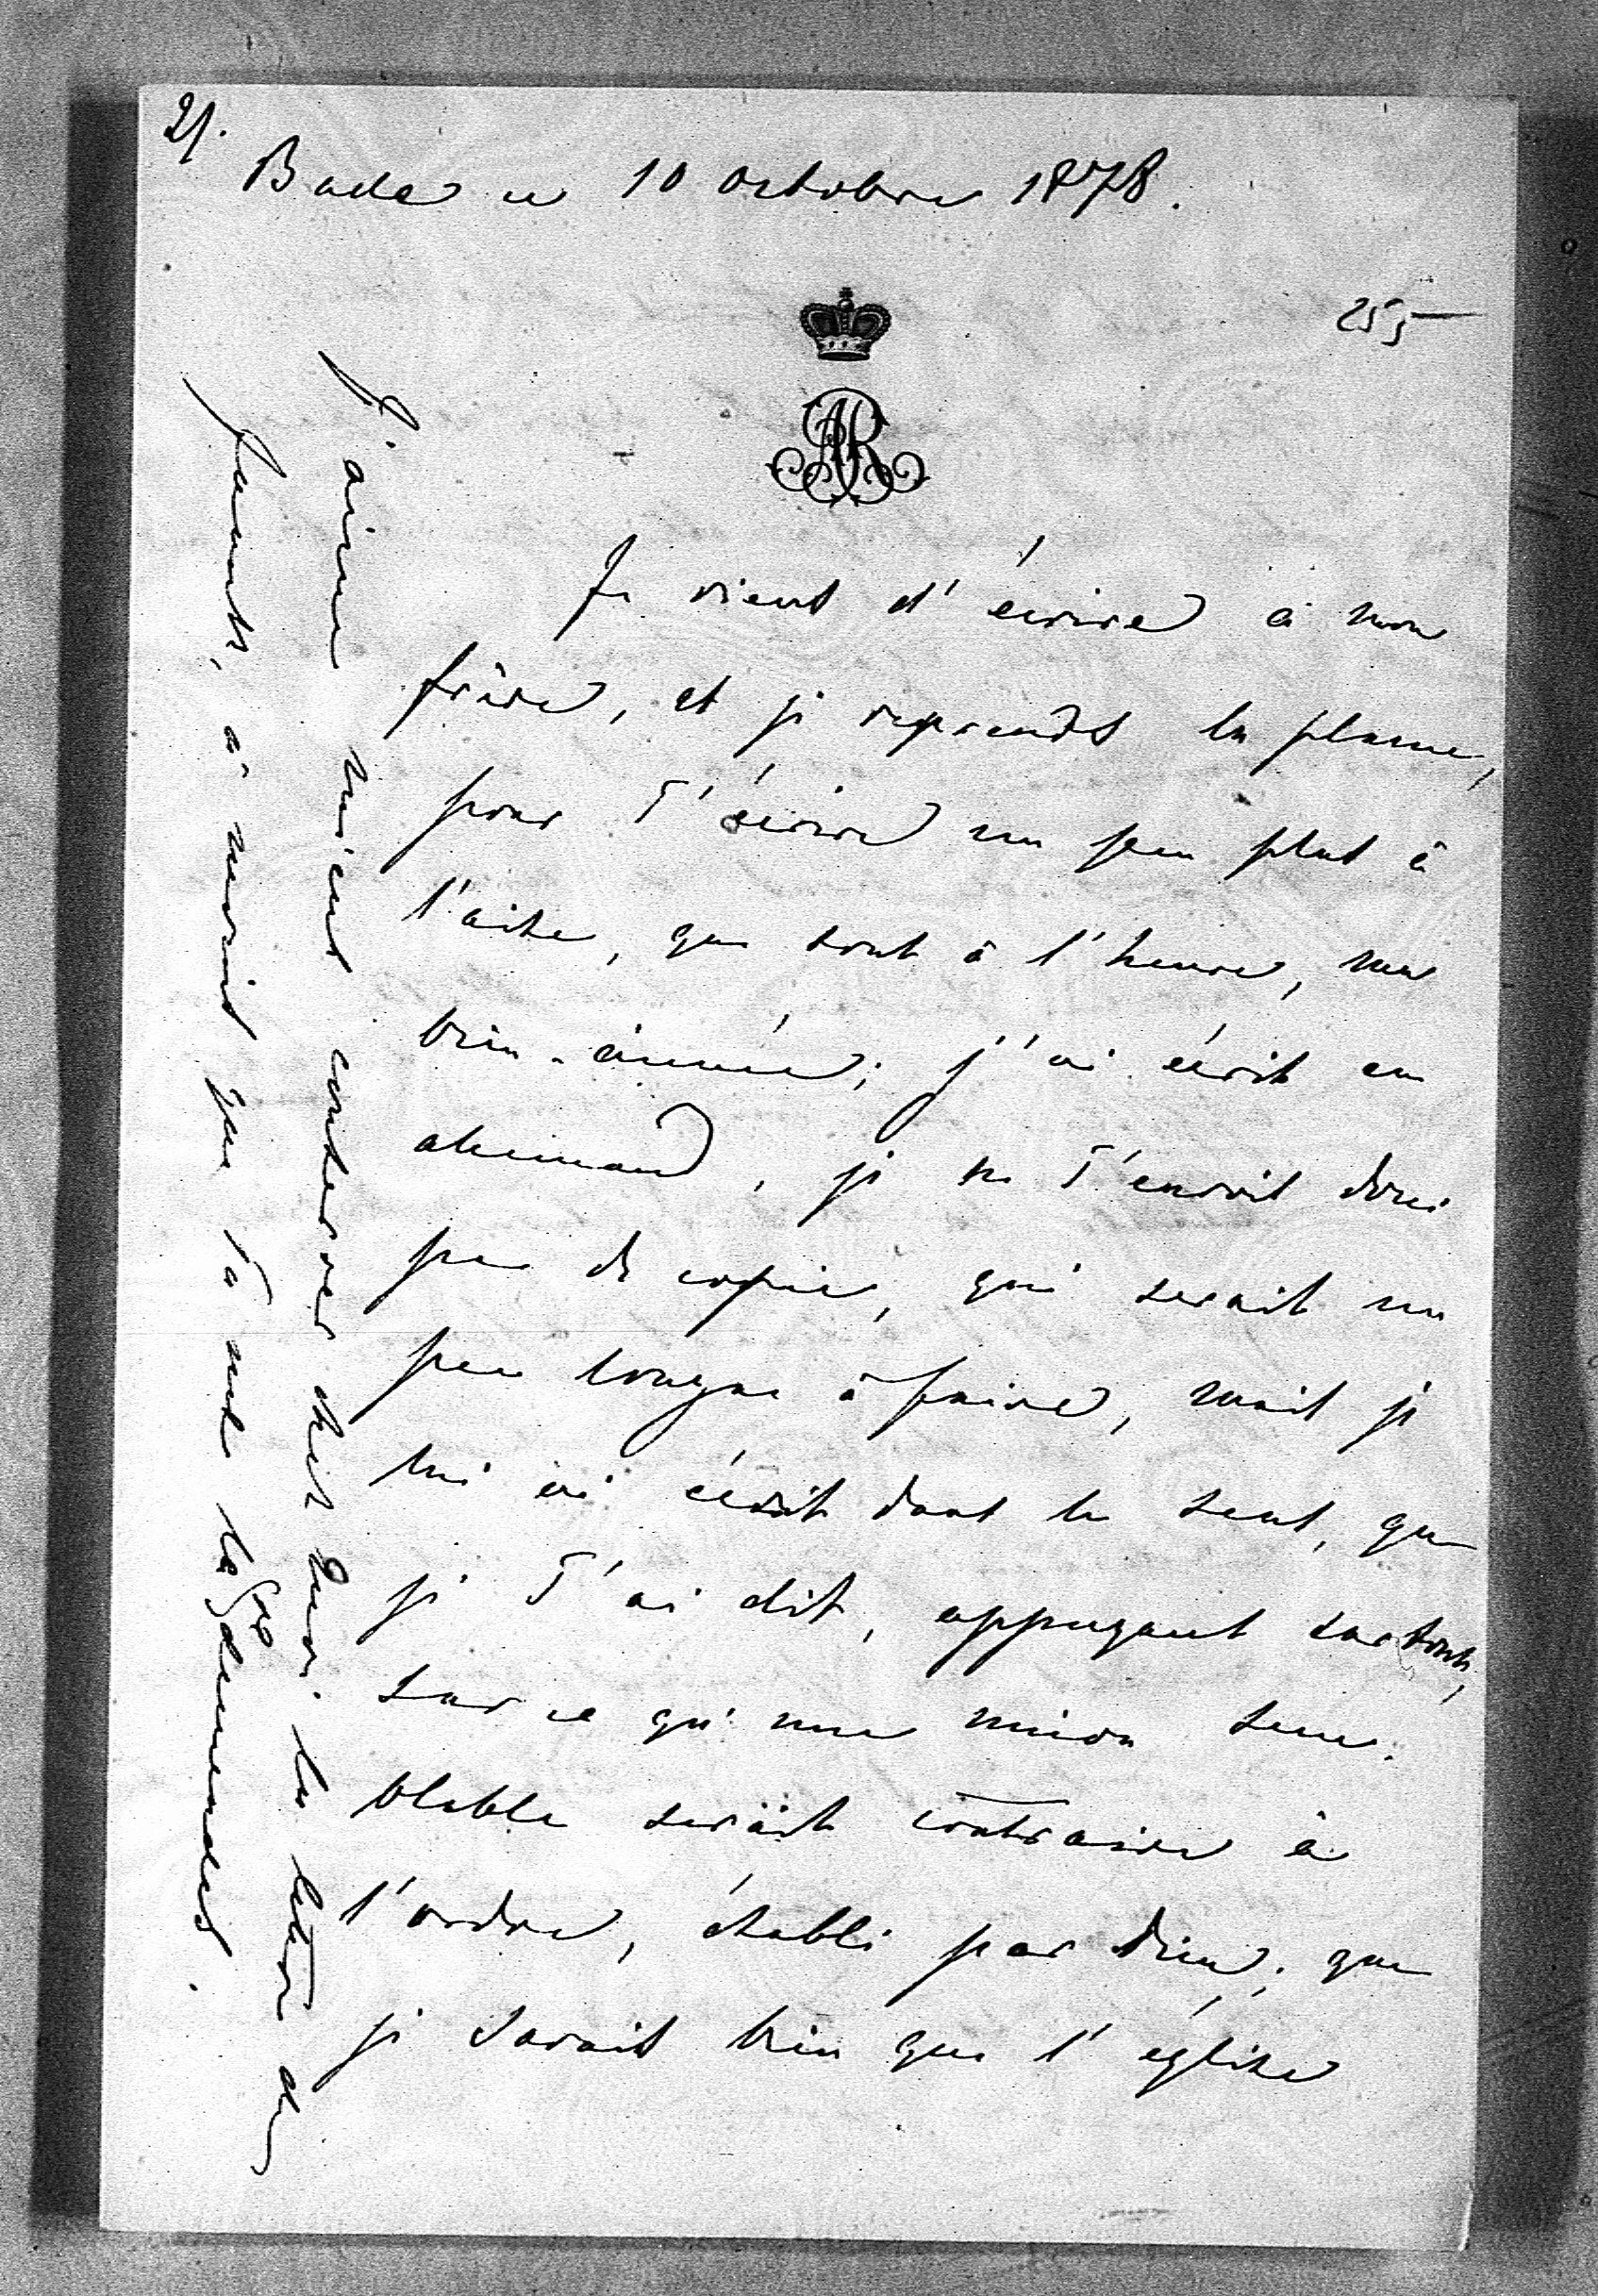 2).
Bade ce 10 octobre 1878.
255
AR
Je viens d'écrire à mon
frère, et je reprends la plume,
pour T'écrire un peu plus à
l'aise, que tout à l'heure, ma
bien-aimée; j'ai écrit en
alemand, je ne T'envois donc
pas de copie, qui serait un
peu longue à faire, mais je
lui ai écrit dans le sens, que
je T'ai dit, appuyant surtout,
sur ce qu'une union sem-
blable serait contraire à
l'ordre, établi par Dieu; que
je savais bien que l'église
J'aime mieux conserver chez moi la lettre de
, à moins que Ta me la demandes.